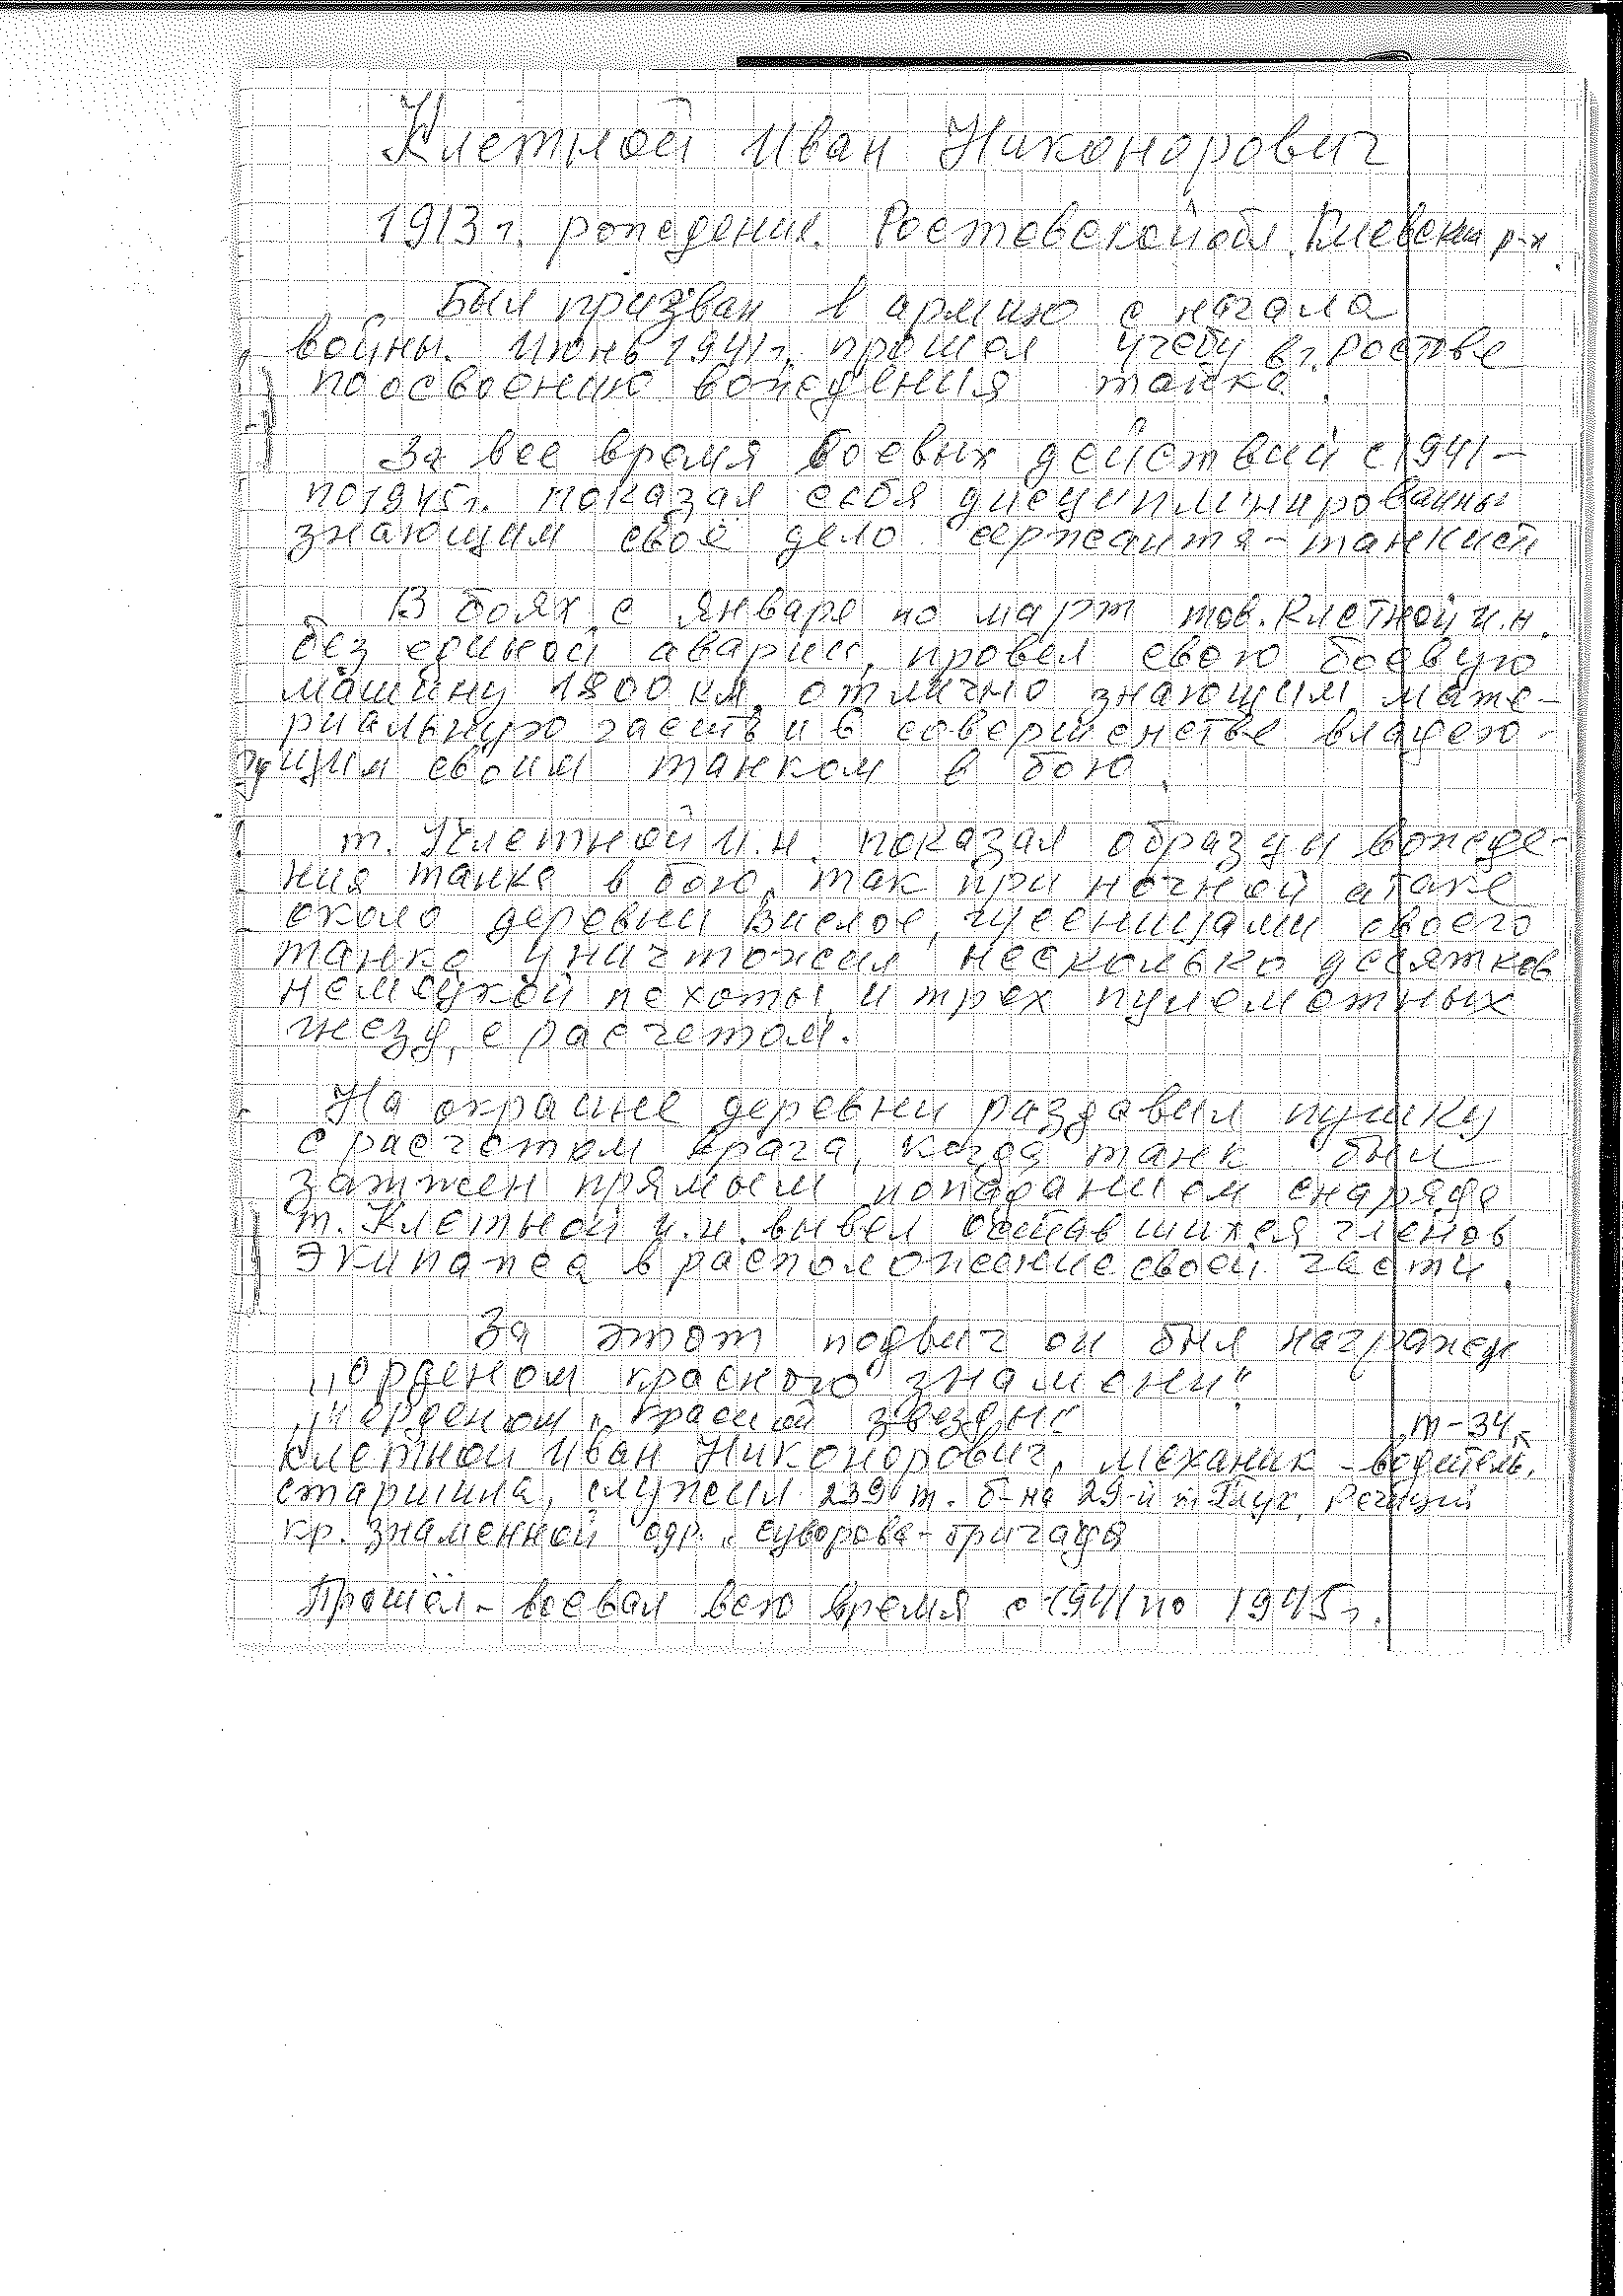 Клетной Иван Никонорович
1913 г. рождения. Ростовской обл. Киевский р-н.
Был призван в армию с начала
войны. Июнь 1941 г. прошел учебу в г. Ростове
по освоению вождения танка.
За все время боевых действий с 1941 –
по 1945 г. показал себя дисциплинированны
знающим своё дело сержанта-танкист
В боях с января по март тов. Клетной И.Н.
без единой аварии, провел свою боевую
машину 1800 км, отлично знающим мате-
риальную часть и в совершенстве владею-
щим своим танком в бою.
т. Клетной И.Н. показал образцы вожде-
ния танка в бою, так при ночной атаке
около деревни Вислое, гусеницами своего
танка уничтожил несколько десятков
немецкой пехоты и трех пулеметных
гнезд, с расчетом.
На окраине деревни раздавил пушку
с расчетом врага, когда танк был
зажжен прямым попаданием снаряда
т. Клетной И.Н. вывел оставшихся членов
экипажа в расположение своей части.
За этот подвиг он был награжден
„Орденом красного знамени"
„и орденом „красной звезды" „Т-34„
Клетной Иван Никонорович, механик-водитель,
старшина, служил 239 т. б-на 29-й
кр. знаменной одр. „Суворова-бригада
Прошёл-воевал всю время с 1941 по 1945 г.